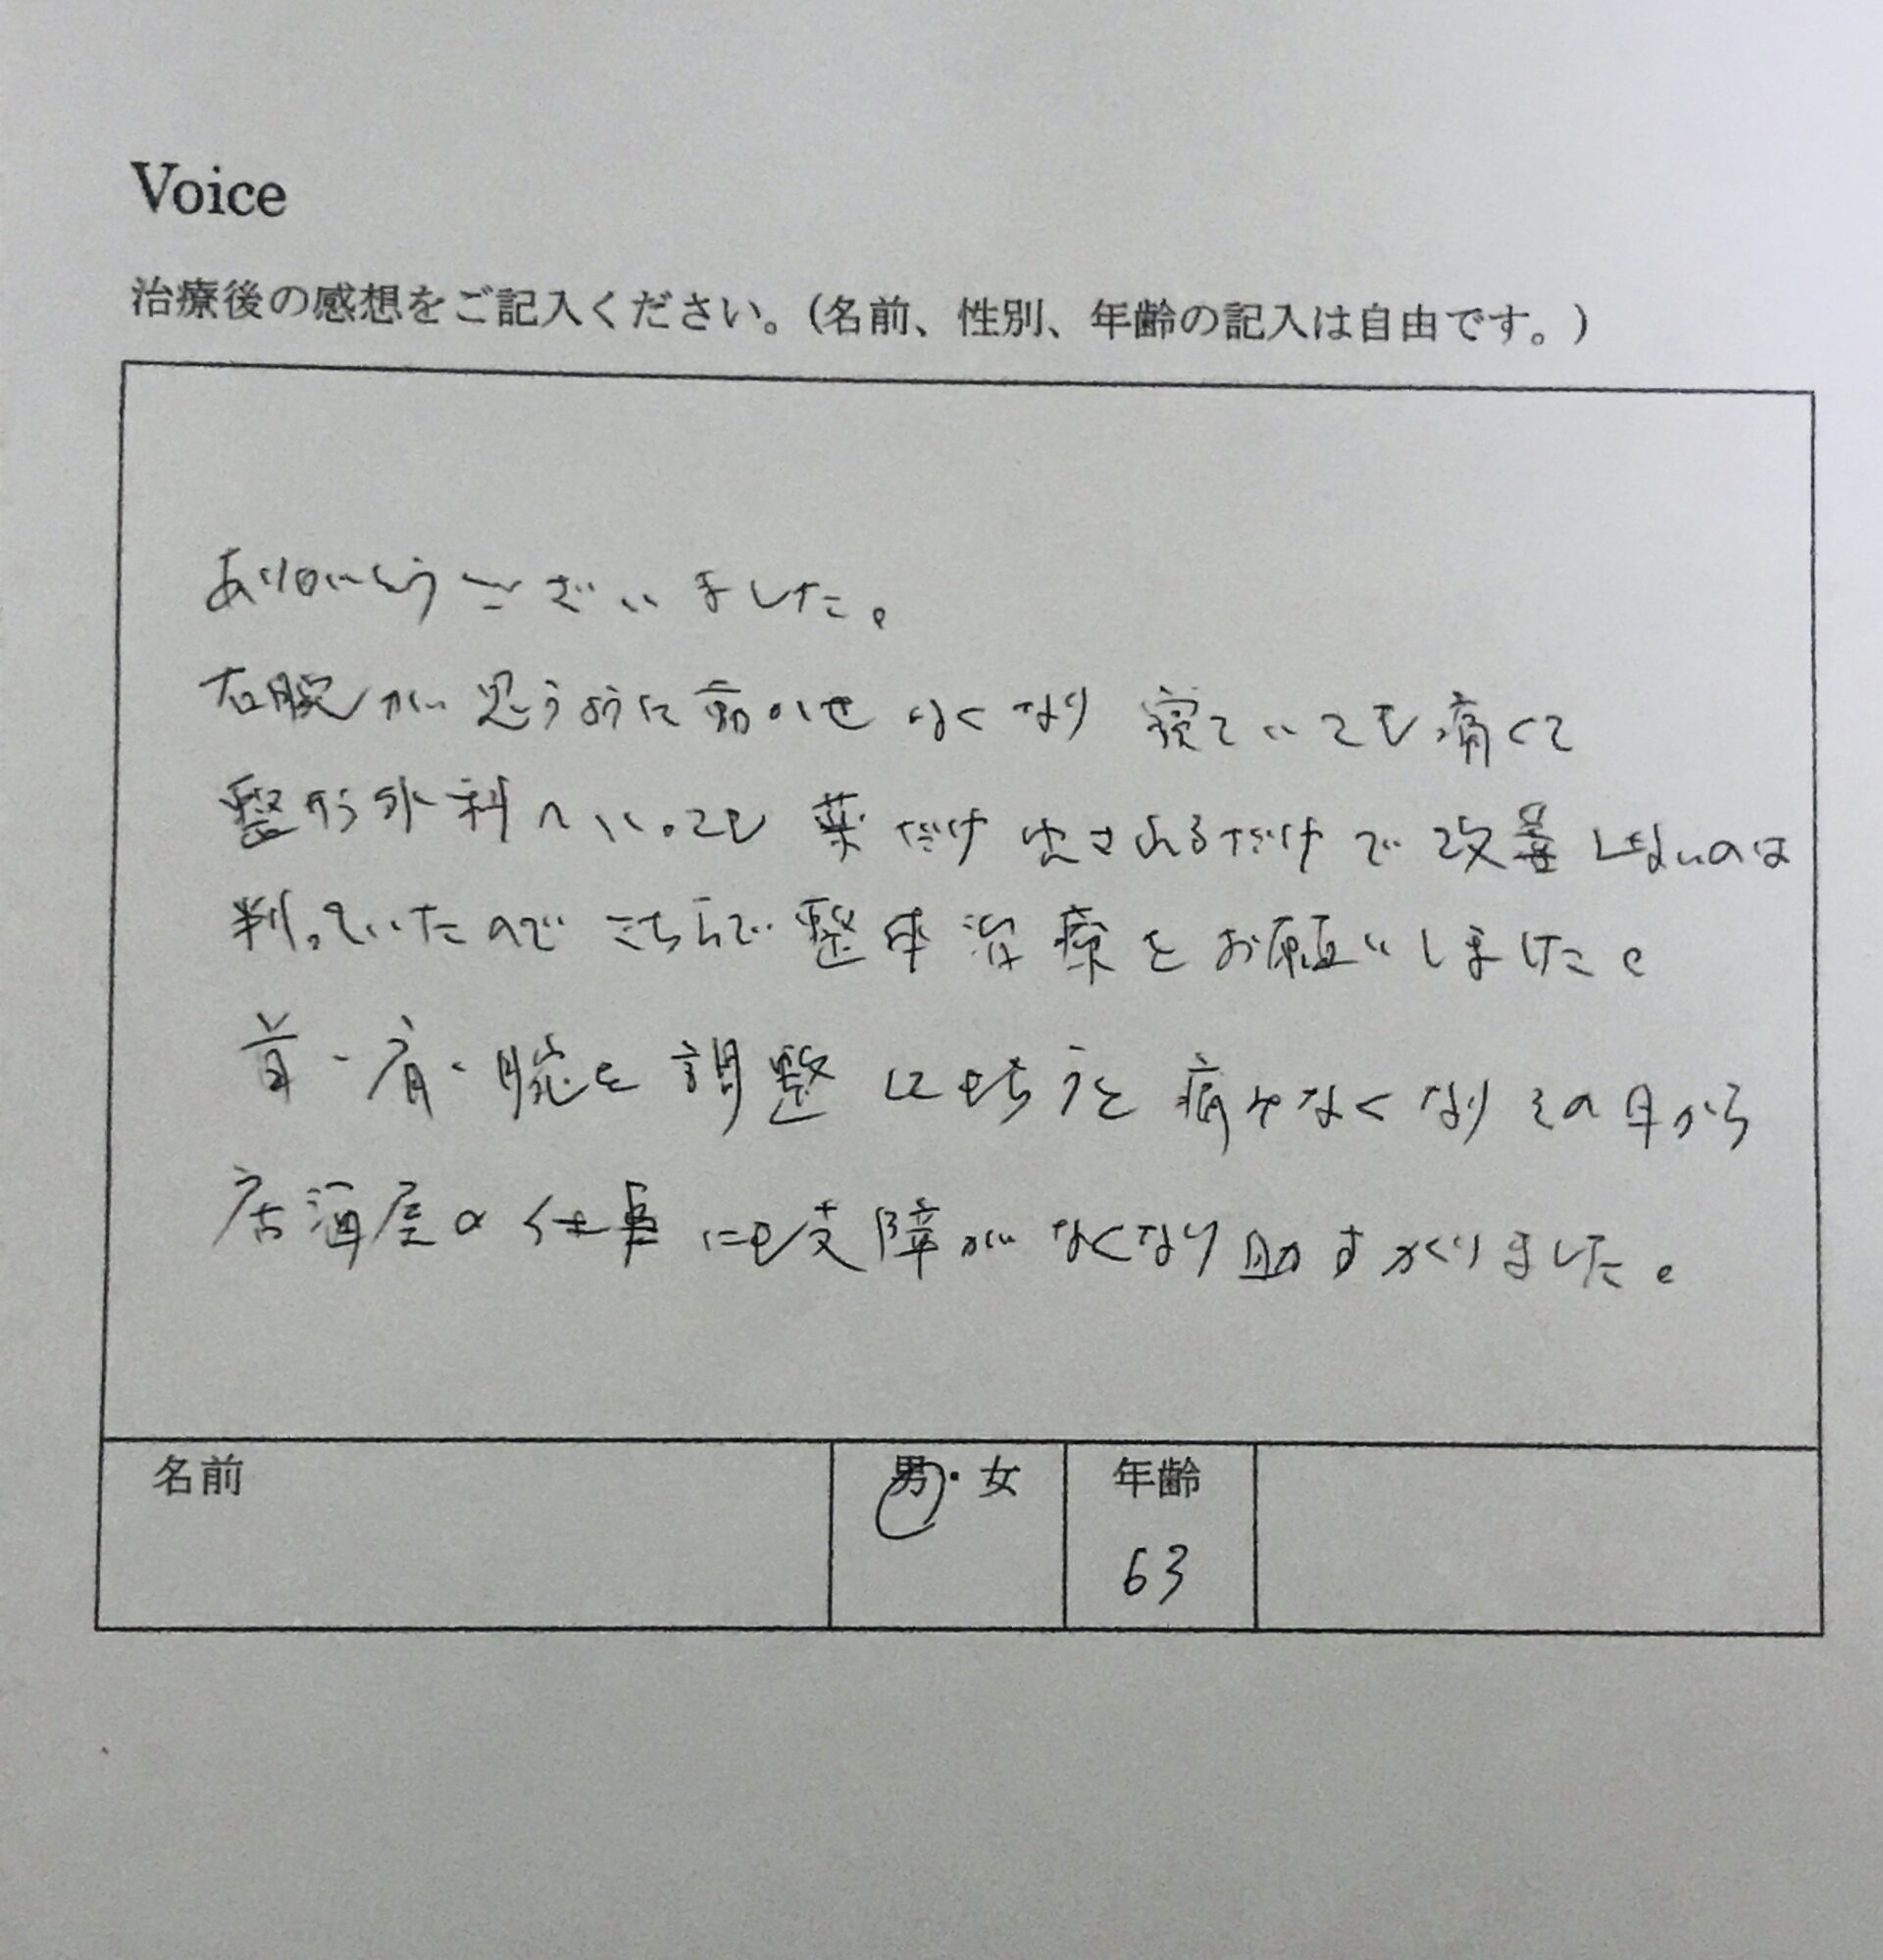 Voice
治療後の感想をご記入ください。(名前、性別、年齢の記入は自由です。)
ありがとうございました。
右腕が思うように動かせなくなり 寝ていても痛くて
整形外科へいっても 薬だけ出されるだけで改善しないのは
判っていたので こちらで整体治療をお願いしました。
首・肩・腕を調整してもらうと 痛みなくなりその日から
居酒屋の仕事にも支障がなくなり助すかりました。
名前 男・女 年齢
63